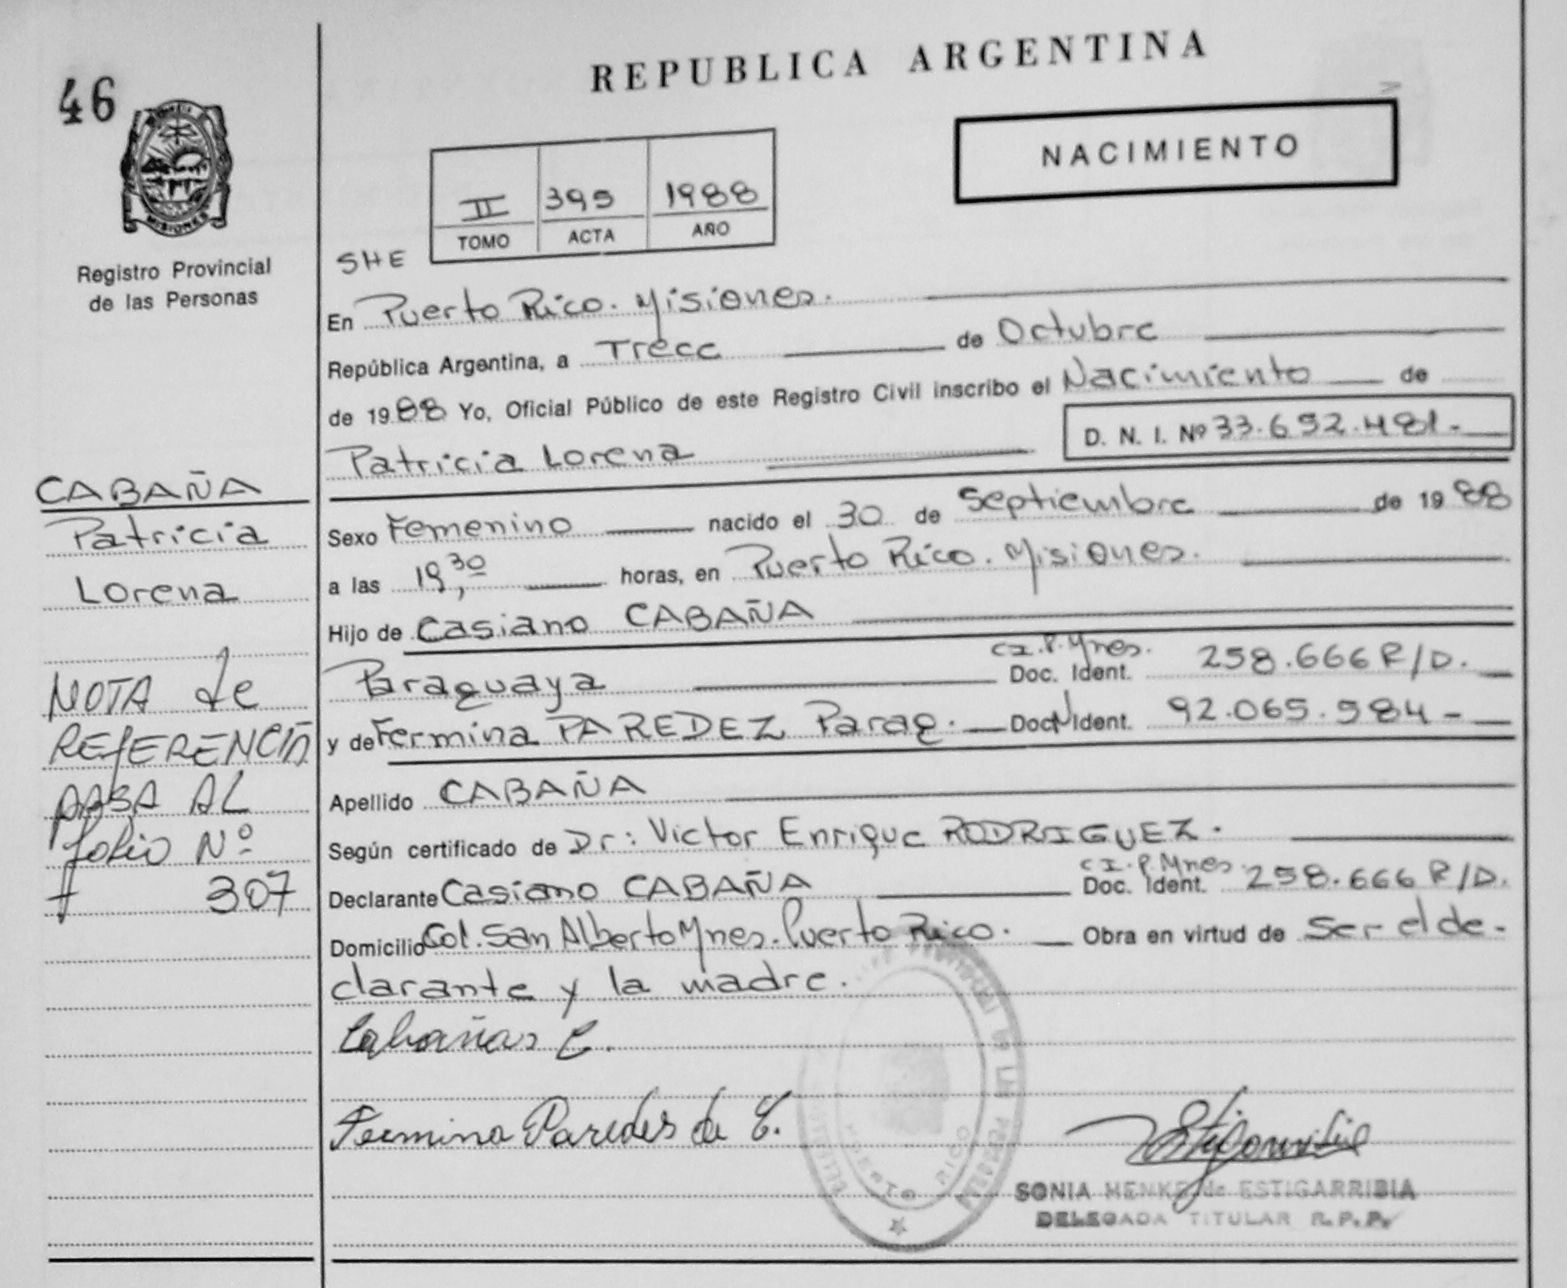 46
REPUBLICA ARGENTINA
NACIMIENTO
II 395 1988
TOMO ACTA AÑO
MISIONES
Registro Provincial
de las Personas
SHE
En Puerto Rico. Misiones.
República Argentina, a Trece de Octubre
de 1988 Yo, Oficial Público de este Registro Civil inscribo el Nacimiento de
Patricia Lorena D. N. I. Nº 33.692.481.-
CABAÑA
Patricia
Lorena
Sexo Femenino nacido el 30 de Septiembre de 1988
a las 19,30 horas, en Puerto Rico. Misiones.
Hijo de Casiano CABAÑA
Paraguaya C.I.P.Mnes. Doc. Ident. 258.666 R/D.
y de Fermina PAREDEZ Parag. Doc. Ident. 92.065.984-
Apellido CABAÑA
Según certificado de Dr: Victor Enrique RODRIGUEZ.
Declarante Casiano CABAÑA C.I.P.Mnes. Doc. Ident. 258.666 R/D.
Domicilio Col. San Alberto Mnes. Puerto Rico. Obra en virtud de Ser el de-
clarante y la madre.
NOTA de
REfERENCIA
PASA AL
folio Nº
307
Cabañas C.
Fermina Paredes de C.
PUERTO RICO
SONIA MENKE de ESTIGARRIBIA
DELEGADA TITULAR R.P.P.